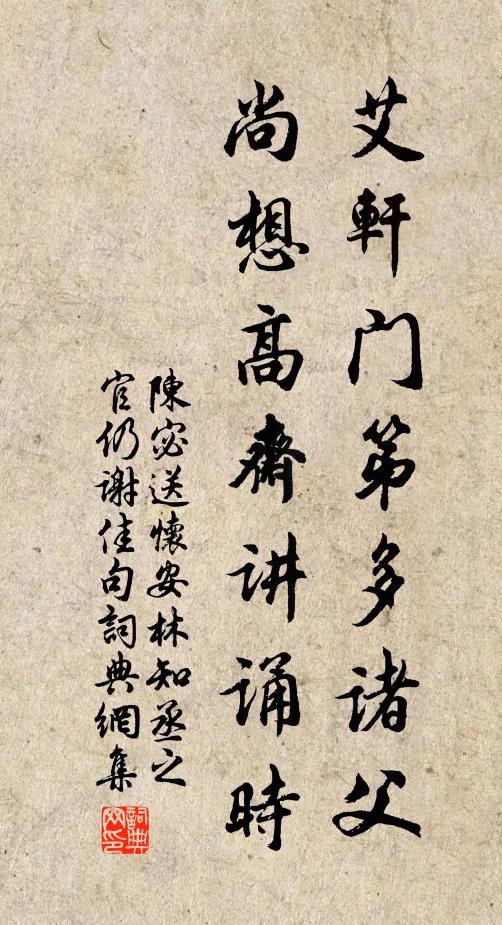 艾軒门第多诸父
尚想高齋讲诵時
陳宓送懷安林知丞之
官仍謝佳句詞典網集
詞典网印